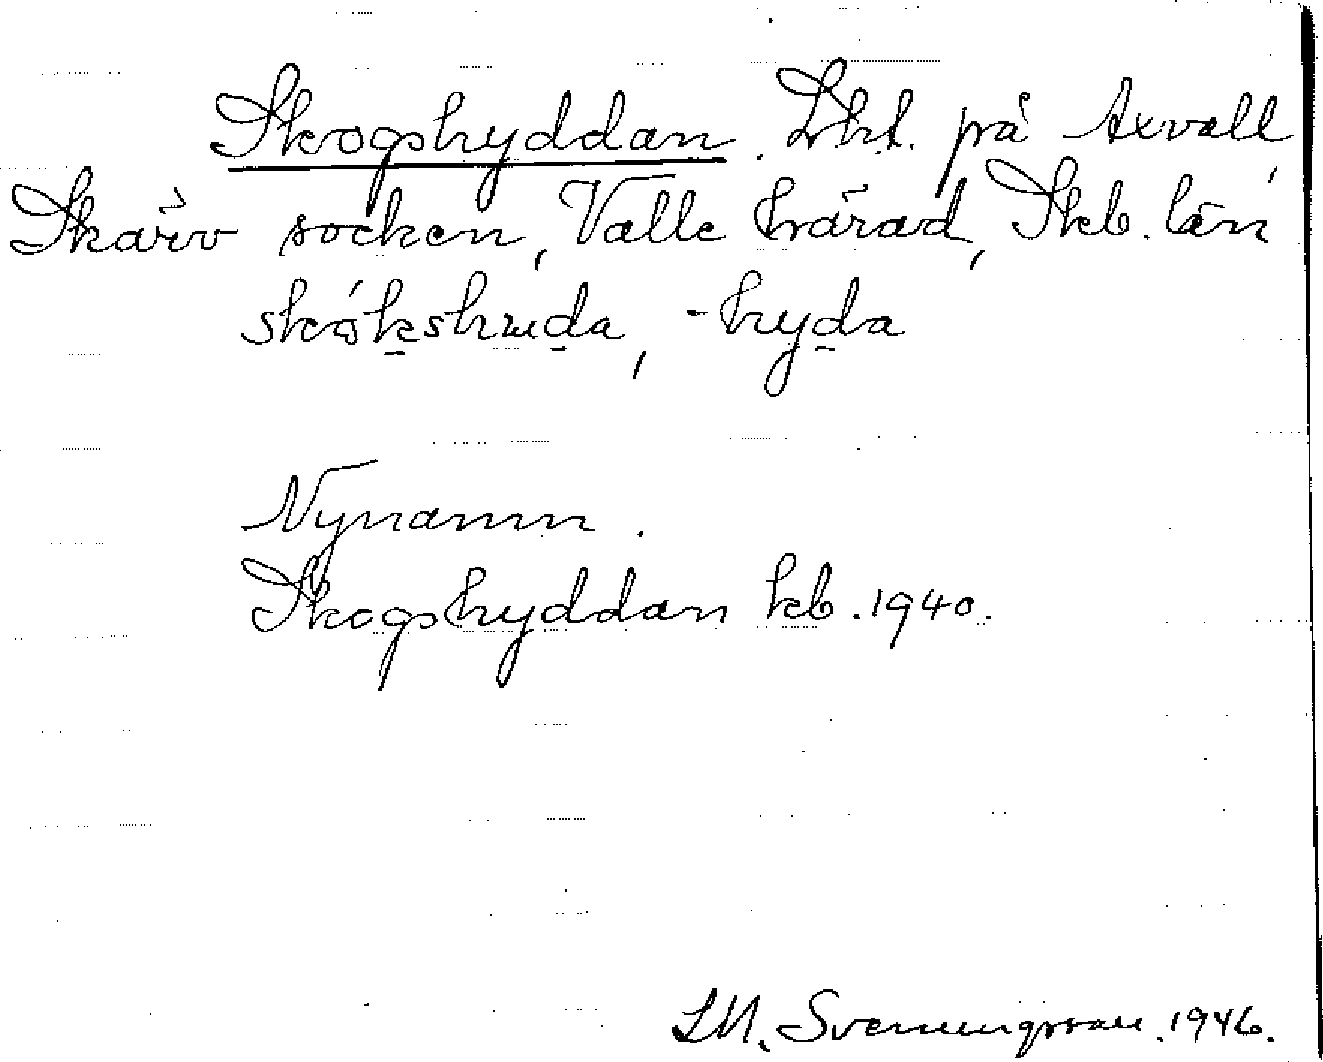 Skogshyddan. Lht. på Axvall
Skärv socken, Valle härad, Skb. län
skókshuda, -hyda
Nynamn.
Skogshyddan kb. 1940.
I.M. Svenungsson. 1946.